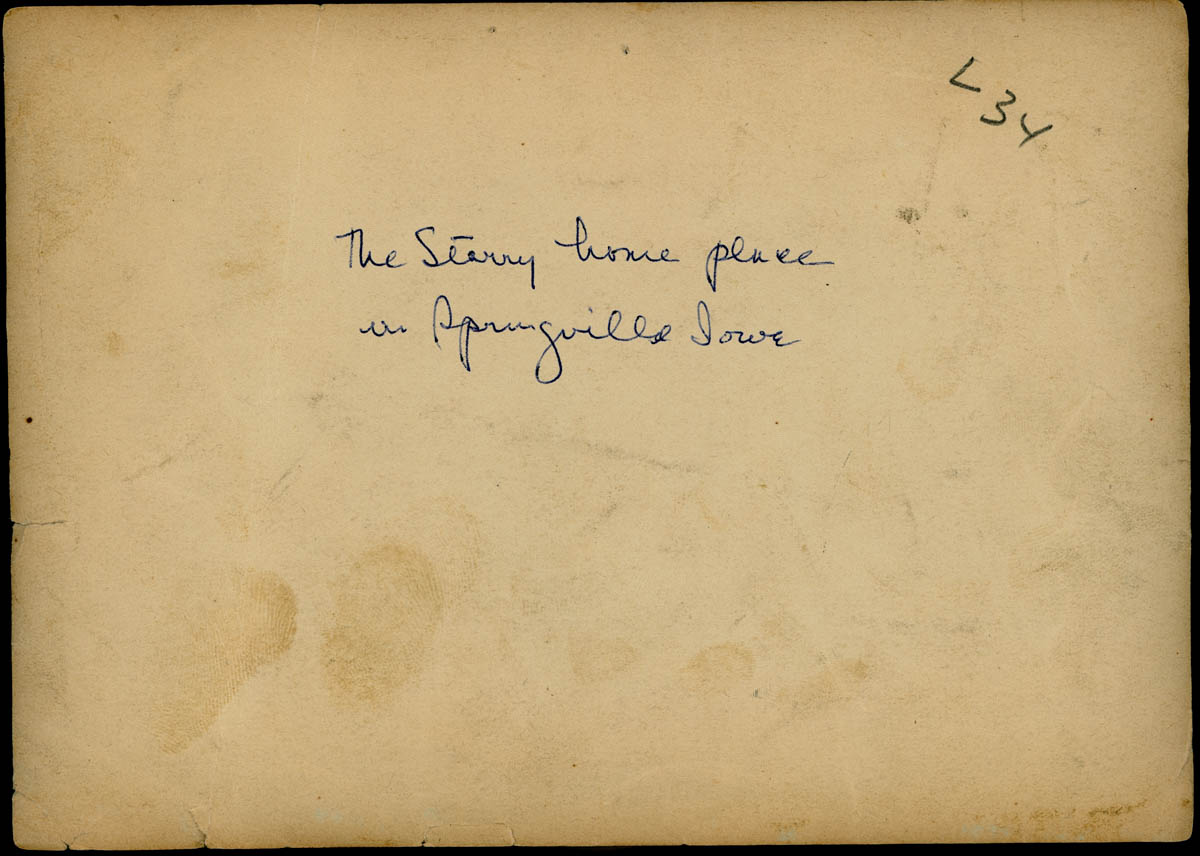 L34
The Starry home place
in Springville Iowa